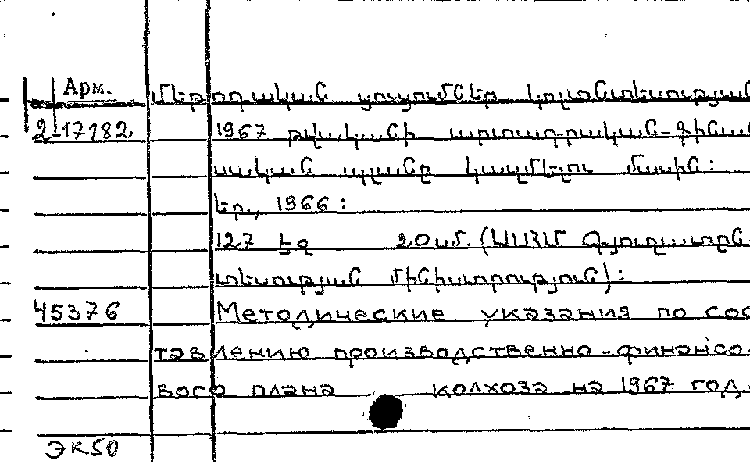 Арм.
Մեթոդական ցուցումներ կոլտնտեսության
2-17182. 1967 թվականի արտադրական-ֆինան
սական պլանը կազմելու մասին:
Եր., 1966:
127 էջ 20 սմ. (ՍՍՀՄ Գյուղատըն
տեսության մինիստրություն):
45376 Методические указания по сос
тавлению производственно-финансо
вого плана колхоза на 1967 год.
ЭК50